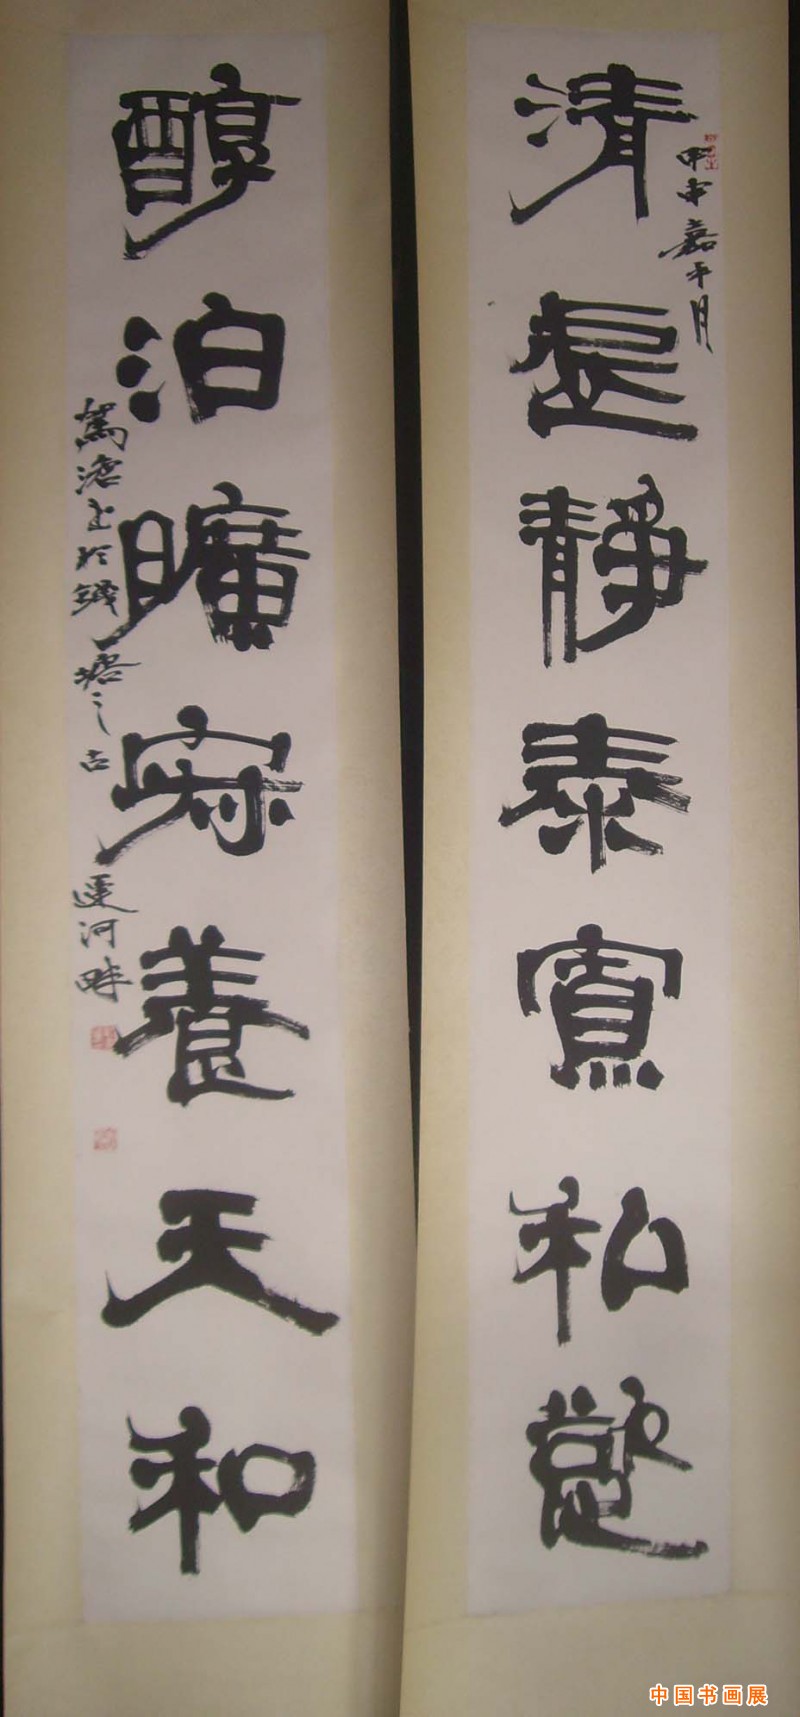 清虚静泰寡私慾
甲申嘉平月
醇泊曠寂養天和
鶩滄書於錢塘之古運河畔
中国书画展